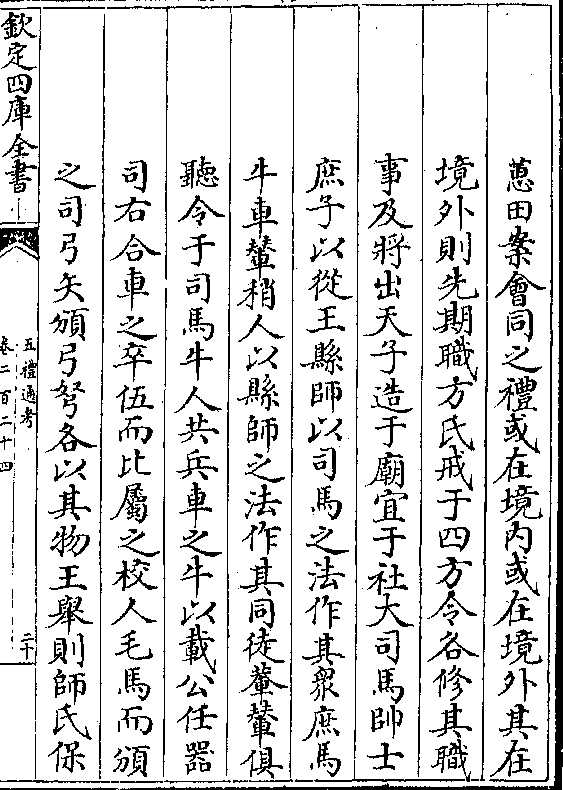 蕙田案會同之禮或在境内或在境外其在
境外則先期職方氏戒于四方令各修其職
事及將出天子造于廟宜于社大司馬帥士
庶子以從王縣師以司馬之法作其衆庶馬
牛車輦稍人以縣師之法作其同徒輂輦俱
聽令于司馬牛人共兵車之牛以載公任器
司右合車之卒伍而比屬之校人毛馬而頒
之司弓矢頒弓弩各以其物王舉則師氏保
欽定四庫全書
五禮通考
卷二百二十四
二十